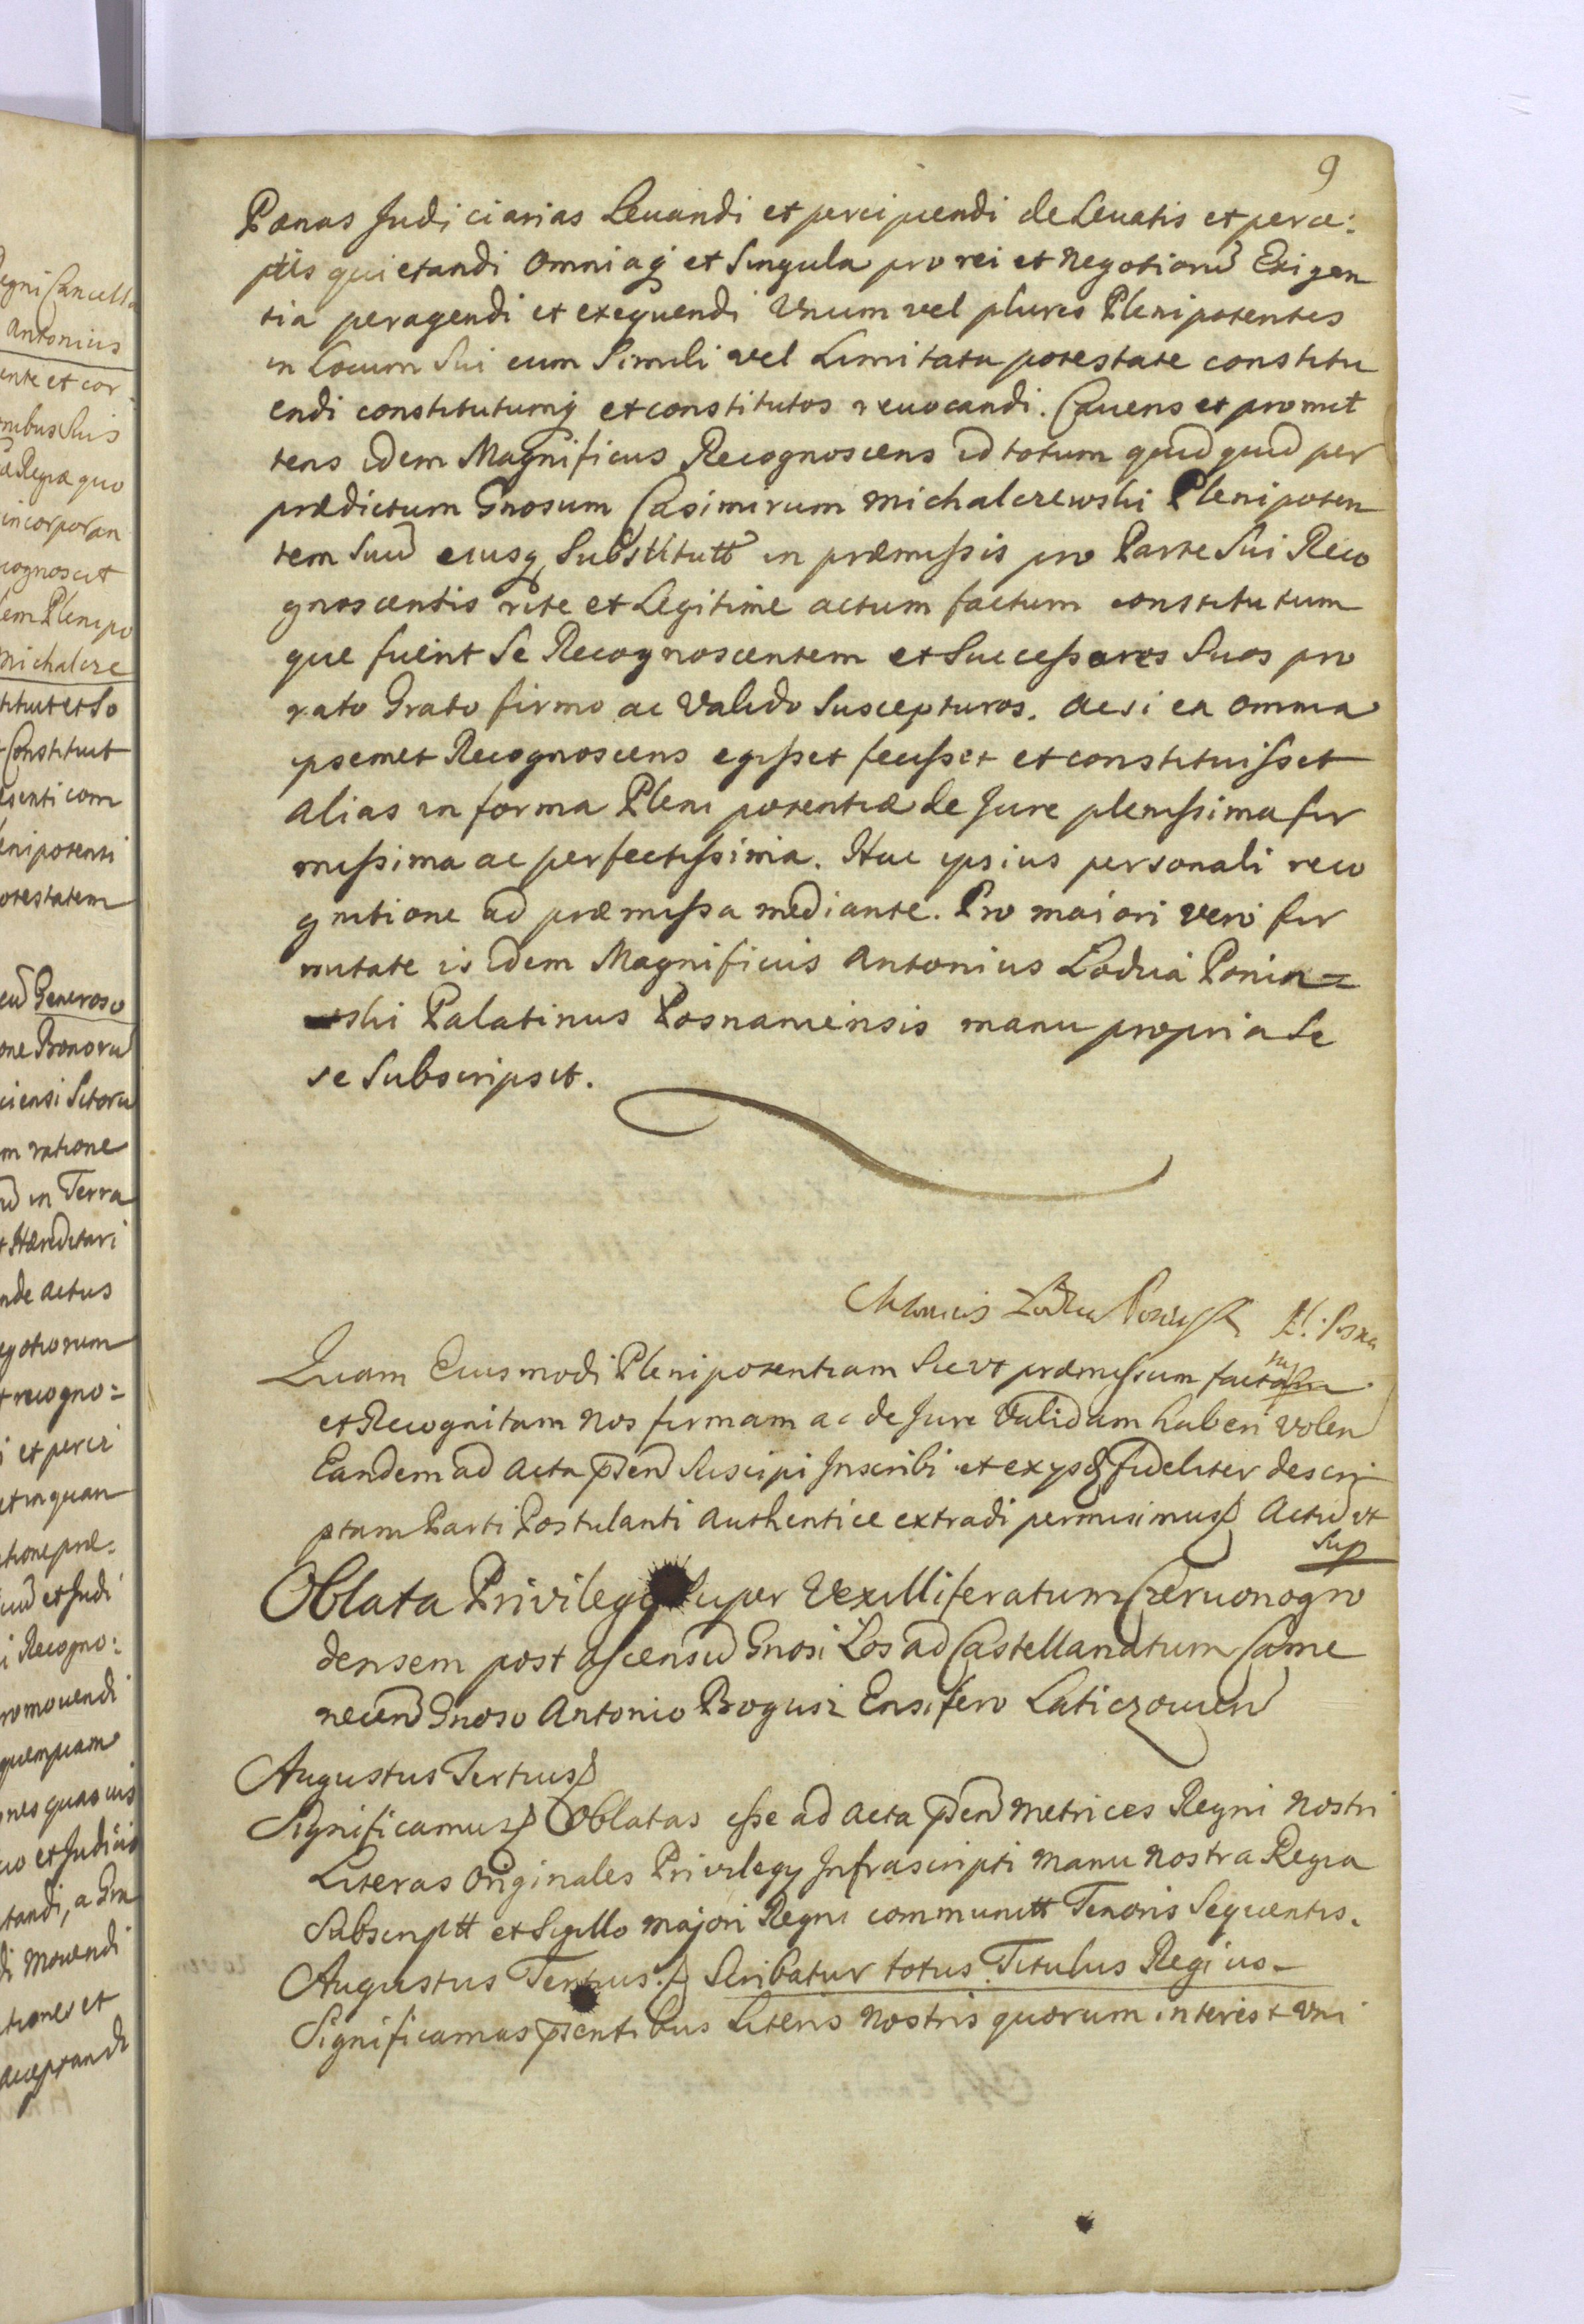 9
Pœnas Judiciarias Levandi et percipiendi de Levatis et perce:
ptis quietandi Omniaq et Singula pro rei et Negotiorū Exigen
tia peragendi et exequendi Unum vel plures Plenipotentes
in Locum Sui cum Simili vel Limitata potestate constitu
endi constitutumq et constitutos revocandi. Cavens et promit
tens idem Magnificus Recognoscens id totum quidquid per
prædictum Gnosum Casimirum Michalczewski Plenipoten
tem Suū eiusq Substitutt in præmissis pro Parte Sui Reco
gnoscentis rite et Legitime actum factum constitutum
que fuerit Se Recognoscentem et Successores Suos pro
rato Grato firmo ac Valido Suscepturos. ac si ea omnia
ipsemet Recognoscens egisset fecisset et constituisset
alias in forma Pleni potentiæ de Jure plenissima fir
missima ac perfectissima. Hac ipsius personali reco
gnitione ad præmissa mediante. Pro maiori vero fir
mitate is idem Magnificus Antonius Lodzia Ponin=
ski Palatinus Posnaniensis manu propria Se
se Subscripsit.
Antonius Lodzia Poninski P. Posna
Quam Eiusmodi Plenipotentiam Sicut præmissum factam
et Recognitam Nos firmam ac de Jure Validam haberi volen
Eandem ad Acta pṡen Suscipi Inscribi et ex ysd fideliter descri
ptam Parti Postulanti Authentice extradi permisimus Actū ut
Sup
Oblata Privilegy Super Vexilliferatum Czerwonogro
densem post ascensū Gnosi Los ad Castellanatum Came
necen Gnoso Antonio Bogusz Ensifero Laticzovien
Augustus Tertius
Significamus Oblatas esse ad Acta pṡen Metrices Regni Nostri
Literas Originales Privilegy Infrascripti Manu Nostra Regia
Subscriptt et Sigillo Majori Regni communitt Tenoris Sequentis.
Augustus Tertius. Scribatur totus Titulus Regius.
Significamus pṡentibus Literis Nostris quorum interest Uni